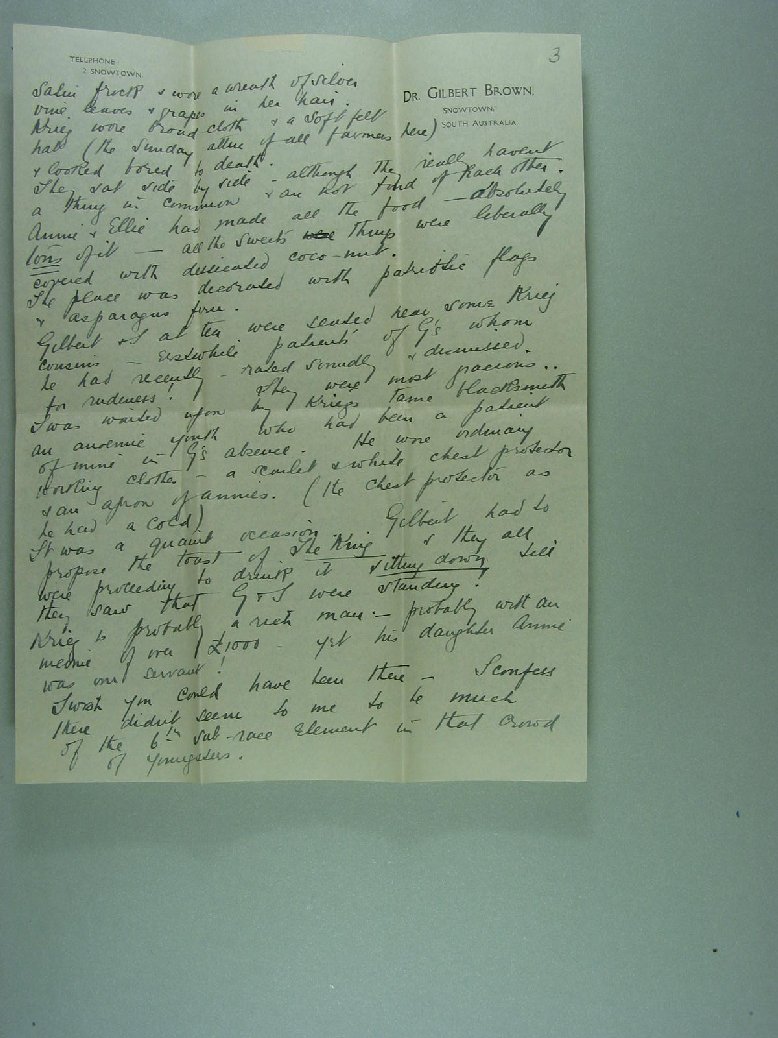 3
TELEPHONE
2 SNOWTOWN.
DR. GILBERT BROWN.
SNOWTOWN.
SOUTH AUSTRALIA
Satin frock & wore a wreath of silver
vine leaves & grapes in her hair.
Krieg wore broad cloth & a soft felt
hat (the Sunday attire of all farmers here)
& looked bored to death.
They sat side by side - although they really havent
a thing in common & are not fond of each other.
Annie & Ellie had made all the food - absolutely
tons of it - all the sweets were things were liberally
covered with dessicated coco-nut.
The place was decorated with patriotic flags
& asparagus fern.
Gilbert & I at tea were seated near some Krieg
cousins - erstwhile patients of G's whom
he had recently - rated soundly & dismissed
for rudeness! They were most gracious..
I was waited upon by Kriegs tame blacksmith
an anaemic youth who had been a patient
of mine in G's absence. He wore ordinary
working clothes - a scarlet & white chest protector
& an apron of annies. (the chest protector as
he had a cold)
It was a quaint occasion. Gilbert had to
propose the toast of The King & they all
were proceeding to drink it sitting down till
they saw that G & I were standing!
Krieg is probably a rich man - probably with an
income of over £1000 - yet his daughter Annie
was our servant!
I wish you could have been there - I confess
there didn't seem to me to be much
of the 6th sub-race element in that crowd
of youngsters.